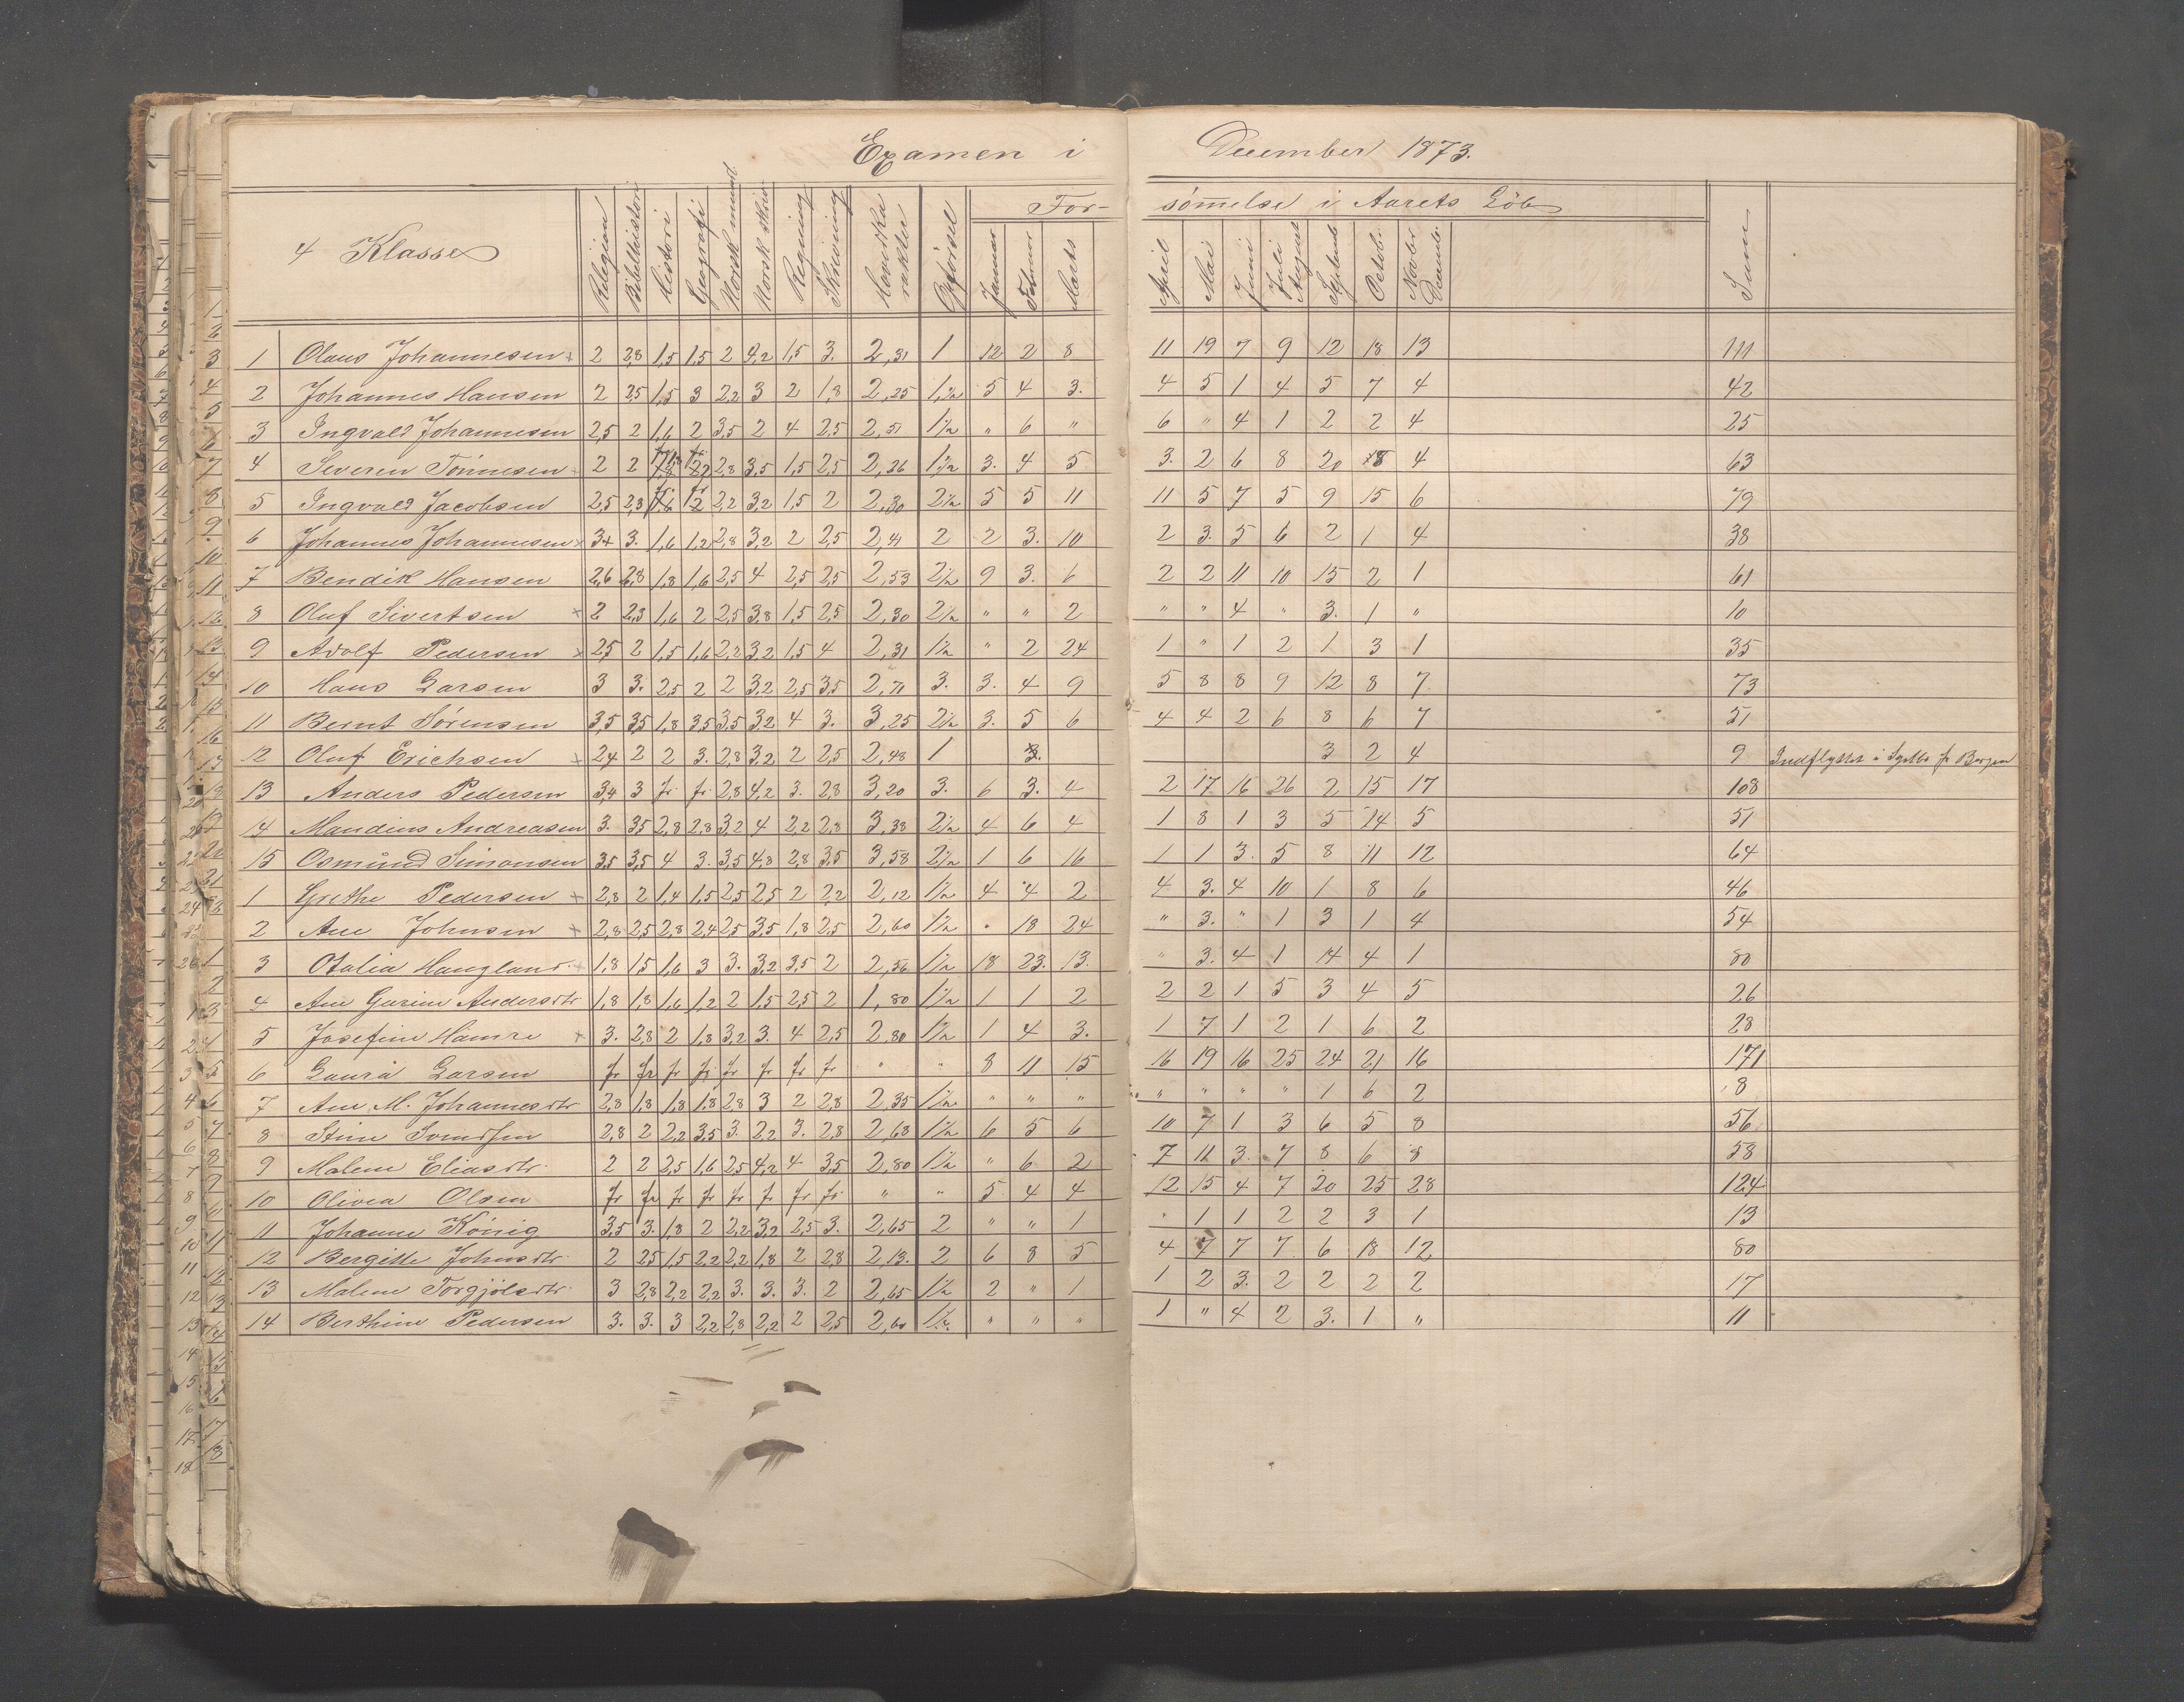 Examen i December 1873.
4 Klasse | Religion | Bibelhistori | Histori | Geografi | Norsk mundt | Norsk skriv | Regning | Skrivning | Hovedka rakter | Opførsel | Forsømmelse i Aarets Løb | Sum
Januar | Februar | Marts | April | Mai | Juni | Juli August | Septemb | Octob. | Novbr Decemb.
1 Olaus Johannesen + 2 2,8 1,5 1,5 2 4,2 1,5 3. 2,31 1 12 2 8 11 19 7 9 12 18 13 111
2 Johannes Hansen 2 2,5 1,5 3 2,2 3 2 1,8 2,25 1 1/2 5 4 3. 4 5 1 4 5 7 4 42
3 Ingvald Johannesen 2,5 2 1,6 2 3,5 2 4 2,5 2,51 1 1/2 " 6 " 6 " 4 1 2 2 4 25
4 Severen Tönnesen 2 2 2,8 3,5 1,5 2,5 2,26 1 1/2 3. 4 5 3. 2 6 8 20 8 4 63
5 Ingvald Jacobsen 2,5 2,3 2,2 3,2 1,5 2 2,30 2 1/2 5 5 11 11 5 7 5 9 15 6 79
6 Johannes Johannesen + 3+ 3. 1,6 1,2 2,8 3,2 2 2,5 2,41 2 2 3. 10 2 3. 5 6 2 1 4 38
7 Bendik Hansen 2,6 2,8 1,8 1,6 2,5 4 2,5 2,5 2,53 2 1/2 9 3. 6 2 2 11 10 15 2 1 61
8 Oluf Sivertsen + 2 2,3 1,6 2 2,5 3,8 1,5 2,5 2,30 2 1/2 " " 2 " " 4 " 3. 1 " 10
9 Adolf Pedersen + 2,5 2 1,5 1,6 2,2 3,2 1,5 4 2,31 1 1/2 " 2 24 1 " 1 2 1 3 1 35
10 Hans Larsen 3 3. 2,5 2 2 3,2 2,5 3,5 2,71 3. 3. 4 9 5 8 8 9 12 8 7 73
11 Bernt Sørensen 3,5 3,5 1,8 3,5 3,5 3,2 4 3. 3,25 2 1/2 3. 5 6 4 4 2 6 8 6 7 51
12 Oluf Erichsen + 2,4 2 2 3. 2,8 3,2 2 2,5 2,48 1 3. 3 2 4 9 Indflyttet i Septbr fr Bergen
13 Anders Pedersen 3,4 3 fr. fr. 2,8 4,2 3. 2,8 3,20 3. 6 3. 4 2 17 16 26 2 15 17 108
14 Mandius Andreasen 3. 3,5 2,8 2,8 3,2 4 2,2 2,8 3,38 2 1/2 4 6 4 1 8 1 3 5 14 5 51
15 Osmund Simonsen 3,5 3,5 4 3. 3,5 4,8 2,8 3,5 3,58 2 1/2 1 6 16 1 1 3. 5 8 11 12 64
1 Grethe Pedersen + 2,8 2 1,4 1,5 2,5 2,5 2 2,2 2,12 1 1/2 4 4 2 4 3. 4 10 1 8 6 46
2 Ane Johnsen + 2,8 2,5 2,8 2,4 2,5 3,5 1,8 2,5 2,60 1 1/2 " 18 24 " 3. " 1 3 1 4 54
3 Otalia Haugland. + 1,8 1,5 1,6 3 3. 3,2 3,5 2 2,56 1 1/2 18 23. 13. " 3. 4 1 14 4 1 80
4 Ane Gurine Andersdtr 1,8 1,8 1,6 1,2 2 1,5 2,5 2 1,80 1 1/2 1 1 2 2 2 1 5 3 4 5 26
5 Josefine Hamre + 3. 2,8 2 1,8 3,2 3. 4 2,5 2,80 1 1/2 1 4 3. 1 7 1 2 1 6 2 28
6 Laura Larsen fr fr fr fr fr fr fr fr " " 8 11 15 16 19 16 25 24 21 16 171
7 Ane M. Johannesdtr 2,8 1,8 1,8 1,8 2,8 3 2 2,8 2,35 1 1/2 " " " " " " " 1 6 2 8
8 Stine Svendsen 2,8 2 2,2 3,5 3. 2,2 3. 2,8 2,68 1 1/2 6 5 6 10 7 1 3 6 5 8 56
9 Malene Eliasdtr. 2 2 2,5 1,6 2,5 4,2 4 3,5 2,80 1 1/2 " 6 2 7 11 3. 7 8 6 8 58
10 Olivea Olsen fr fr fr fr fr fr fr fr " " 5 4 4 12 15 4 7 20 25 28 124
11 Johanne König 3,5 3. 1,8 2 2,2 3,2 2,5 3. 2,65 2 " " 1 " 1 1 2 2 3 1 13
12 Bergitte Johnsdtr. 2 2,5 1,5 2,2 2,2 1,8 2 2,8 2,13. 2 6 8 5 4 7 7 7 6 18 12 80
13 Malene Torgjölsdtr. 3 2,8 2,2 2,2 3. 3. 3. 2 2,65 1 1/2 2 " 1 1 2 3. 2 2 2 2 17
14 Berthine Pedersen 3. 3. 3 2,2 2,8 2,2 2 2,5 2,60 1 1/2 " " " 1 " 4 2 3. 1 " 11